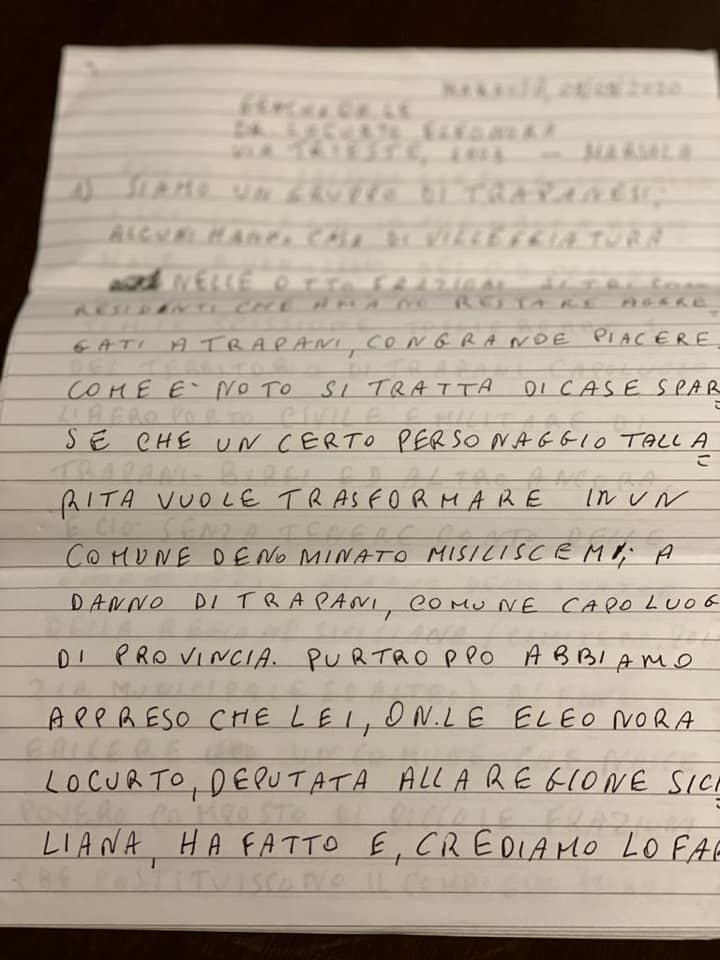 MARSALA, 2020
GENT.MA ON.LE
DR. LOCURTO ELEONORA
VIA TRIESTE, — MARSALA
1) SIAMO UN GRUPPO DI TRAPANESI;
ALCUNI HANNO CASA DI VILLEGGIATURA
NELLE OTTO FRAZIONI
RESIDENTI CHE AMANO RESTARE AGGRE
GATI A TRAPANI, CON GRANDE PIACERE.
COME E' NOTO SI TRATTA DI CASE SPAR
SE CHE UN CERTO PERSONAGGIO TALLA
RITA VUOLE TRASFORMARE IN UN
COMUNE DENOMINATO MISILISCEMI; A
DANNO DI TRAPANI, COMUNE CAPOLUOG
DI PROVINCIA. PURTROPPO ABBIAMO
APPRESO CHE LEI, ON.LE ELEONORA
LOCURTO, DEPUTATA ALLA REGIONE SICI
LIANA, HA FATTO E, CREDIAMO LO FAR